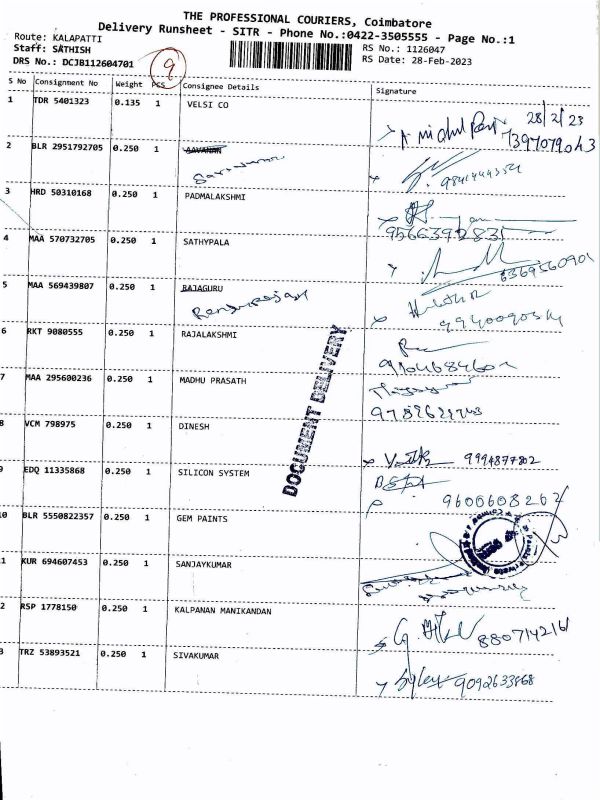 THE PROFESSIONAL COURIERS, Coimbatore
Delivery Runsheet - SITR - Phone No.:0422-3505555 - Page No.:1
Route: KALAPATTI
RS No.: 1126047
Staff: SATHISH
RS Date: 28-Feb-2023
DRS No.: DCJB112604701
9
S No Consignment No Weight PCS Consignee Details Signature
1 TDR 5401323 0.135 1 VELSI CO
28/2/23
2 BLR 2951792705 0.250 1 SAVANAN
3 HRD 50310168 0.250 1 PADMALAKSHMI
9566392831
4 MAA 570732705 0.250 1 SATHYPALA
6369560901
5 MAA 569439807 0.250 1 RAJAGURU
6 RKT 9080555 0.250 1 RAJALAKSHMI
7 MAA 295600236 0.250 1 MADHU PRASATH
8 VCM 798975 0.250 1 DINESH
9994877802
9 EDQ 11335868 0.250 1 SILICON SYSTEM
9600608262
10 BLR 5550822357 0.250 1 GEM PAINTS
11 KUR 694607453 0.250 1 SANJAYKUMAR
12 RSP 1778150 0.250 1 KALPANAN MANIKANDAN
8807142161
13 TRZ 53893521 0.250 1 SIVAKUMAR
9092633868
DOCUMENT DELIVERY